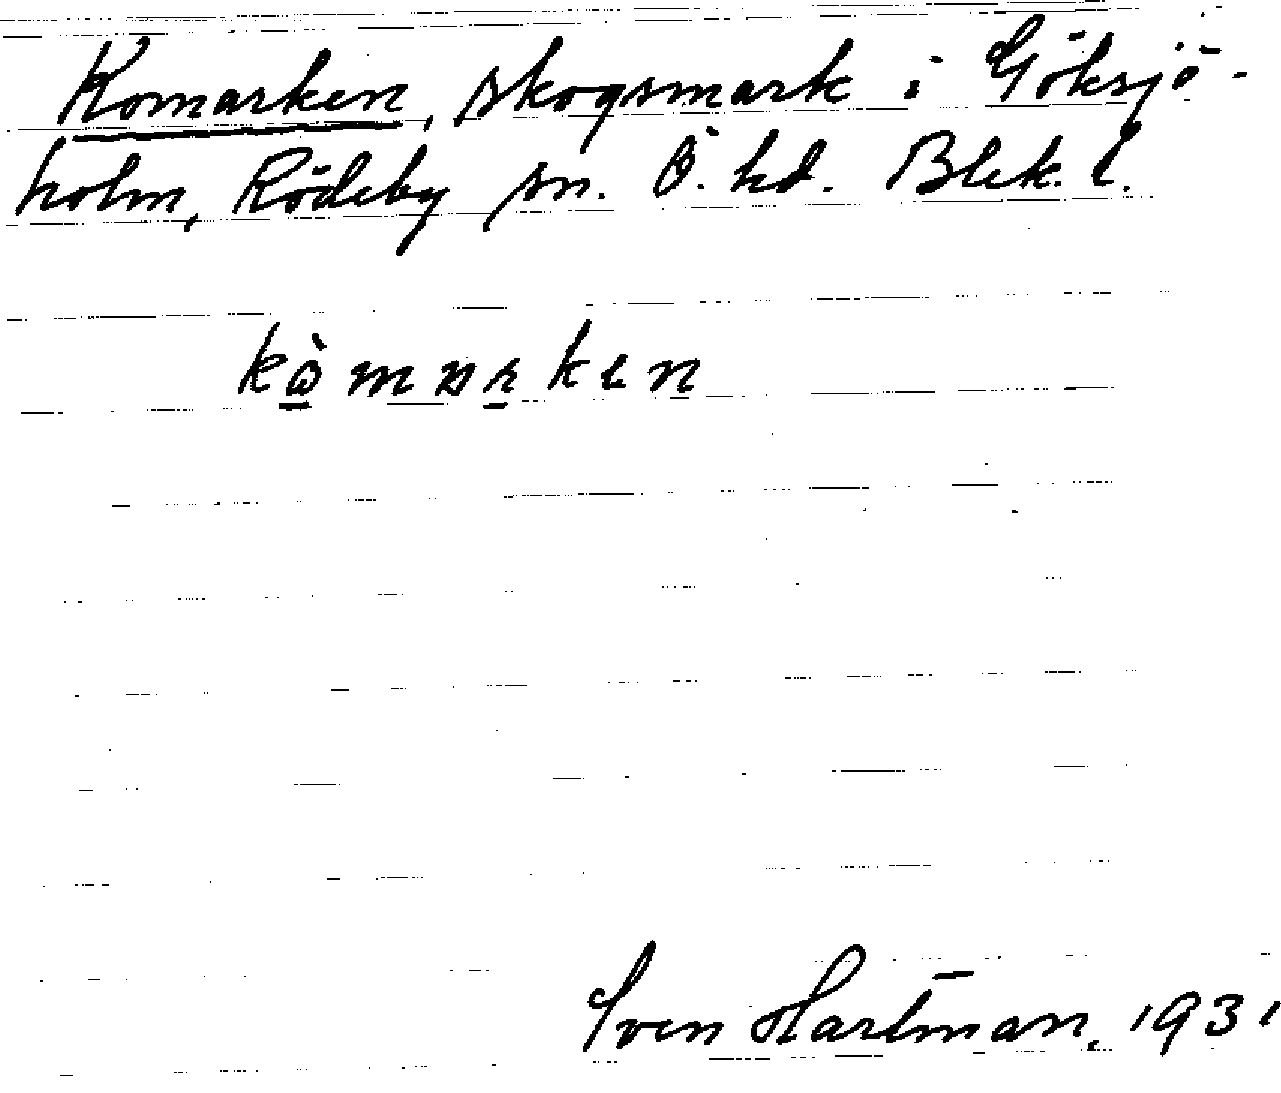 Komarken, skogsmark i Göksjö-
holm, Rödeby sn. Ö. hd. Blek. l.
kὼmɒrkɩn
Sven Hartman. 1931